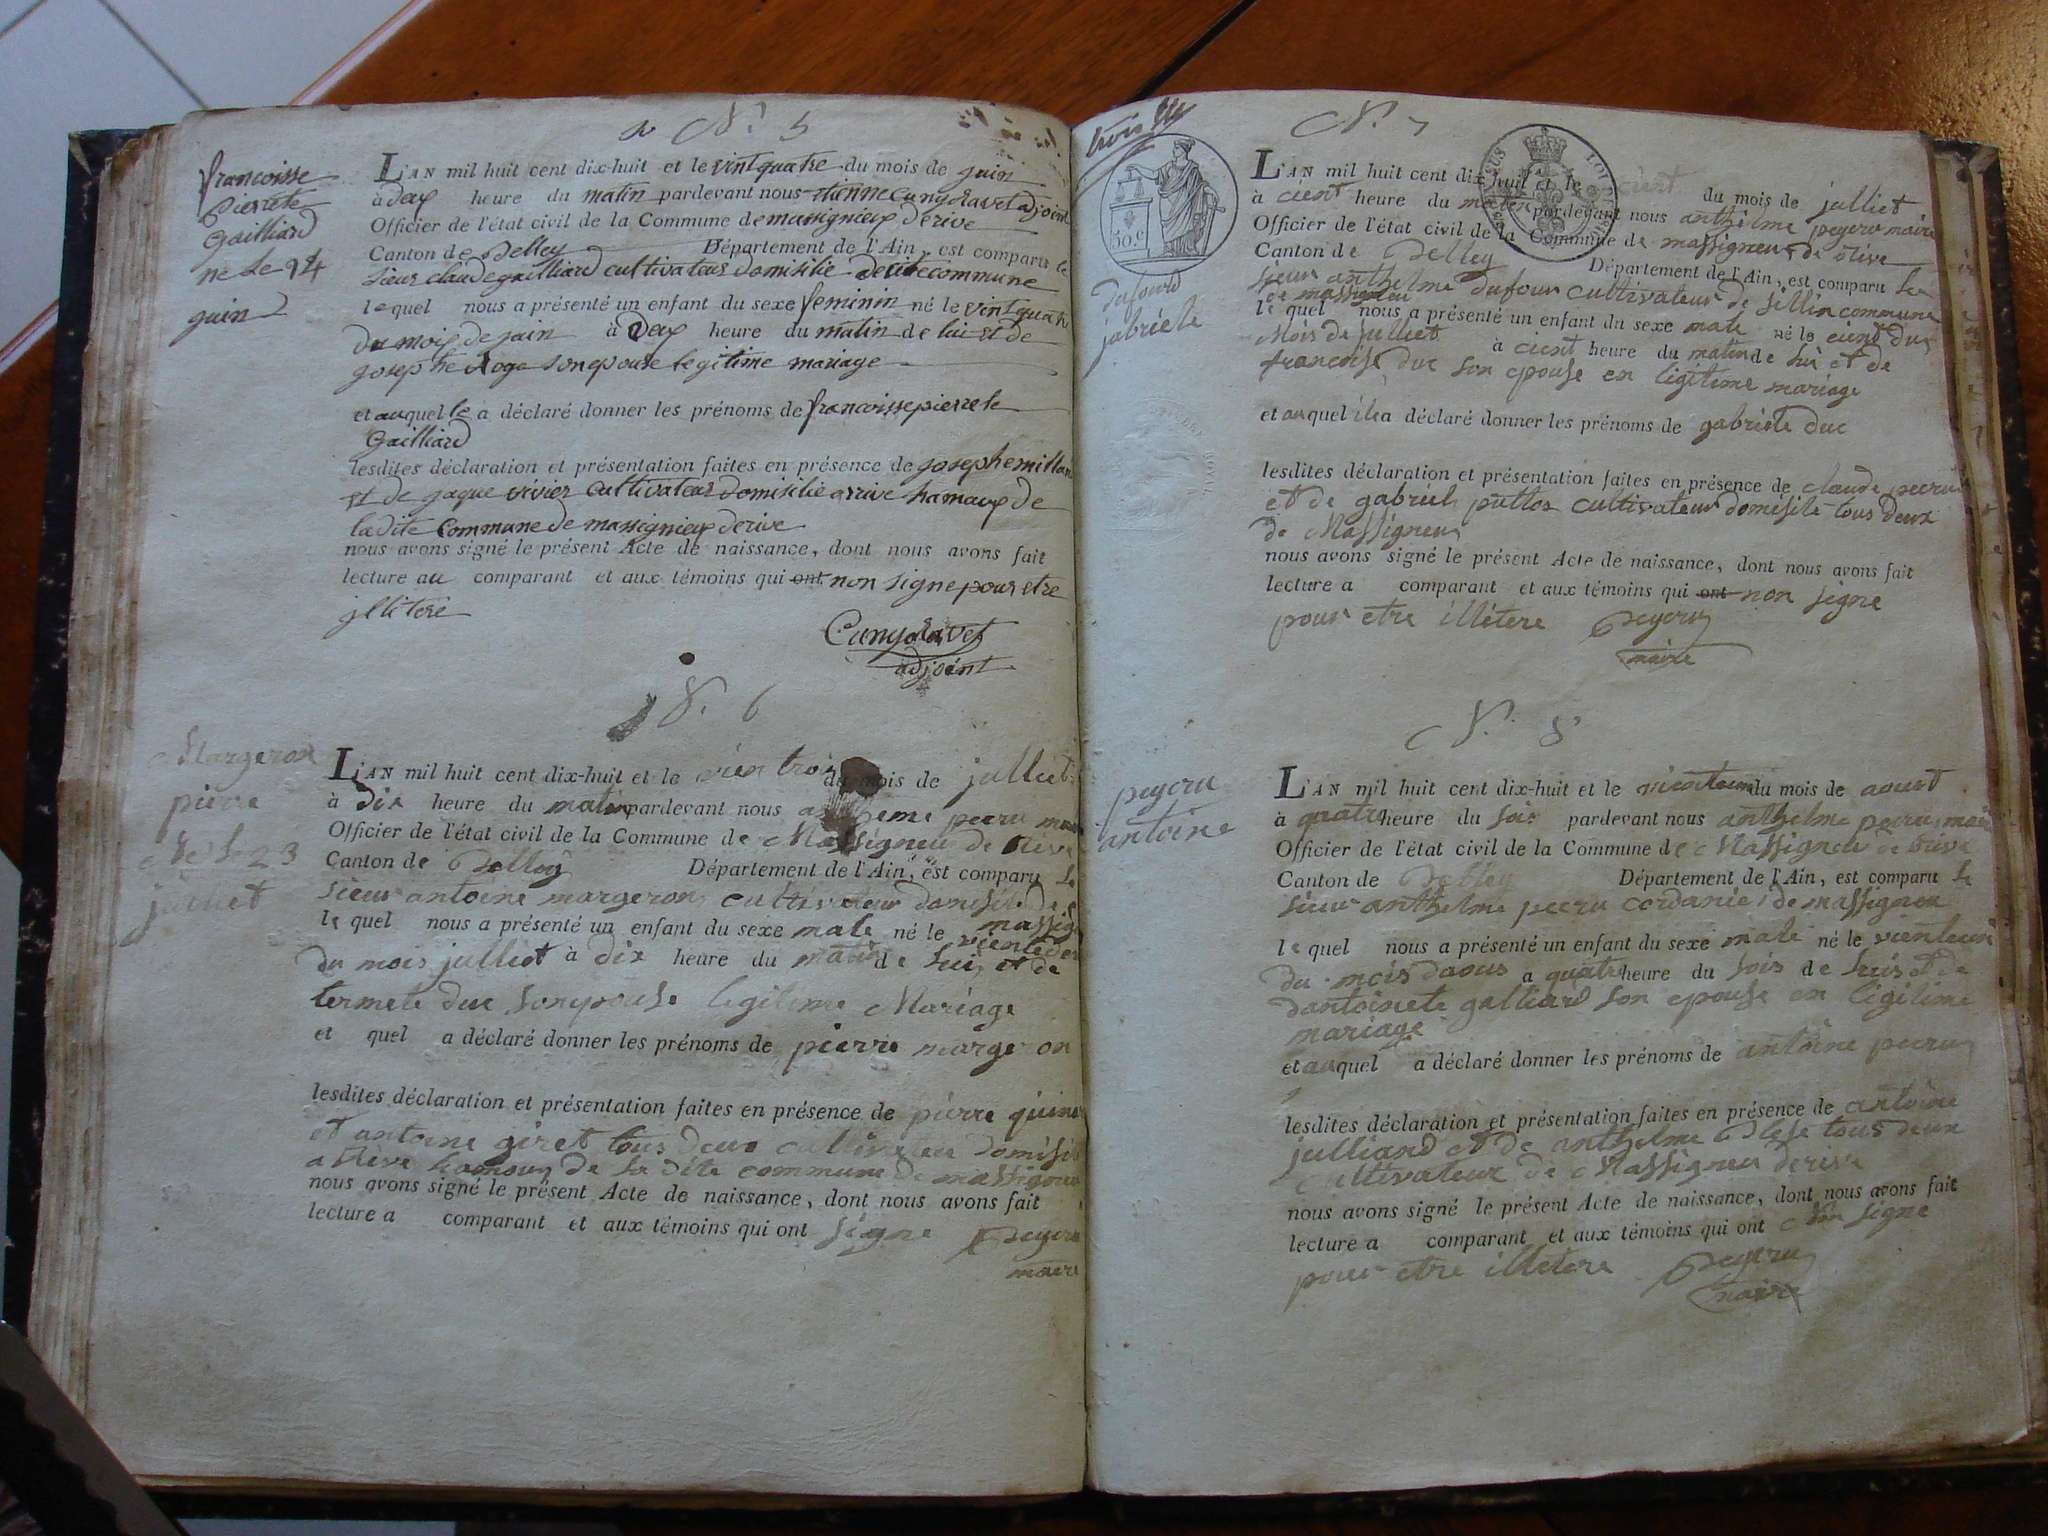 N.º 5
francoisse
pierete
Gailliard
ne le 24
juin
L'AN mil huit cent dix-huit et le vint quatre du mois de juin
à deux heure du matin pardevant nous etienne Cungdavet adjoint
Officier de l'état civil de la Commune de massignieux de rive
Canton de Belley Département de l'Ain, est comparu le
sieur claude gailliard cultivateur domisilie de commune
lequel nous a présenté un enfant du sexe feminin né le vint quatre
du mois de juin à deux heure du matin de lui et de
josephte Roge son epouse legitime mariage
et auquel le a déclaré donner les prénoms de francoisse pierete
Gailliard
lesdites déclaration et présentation faites en présence de joseph emillan
et de jaque vivier cultivateur domisilie a rive hamaux de
la dite commune de massignieux de rive
nous avons signé le présent Acte de naissance, dont nous avons fait
lecture au comparant et aux témoins qui ont non signe pour etre
jlliteré
Cungdavet
adjoint
N.º 6
Margeron
pierre
Ne le 23
julliet
L'AN mil huit cent dix-huit et le vien trois du mois de julliet
à dix heure du matin pardevant nous peeru maire
Officier de l'état civil de la Commune de Massigneu de Rive
Canton de Belley Département de l'Ain, est comparu le
sieur antoine margeron cultivateur domisile de
lequel nous a présenté un enfant du sexe male né le
du mois julliet à dix heure du matin de lui et de
termete duc son epouse legitime Mariage
et quel a déclaré donner les prénoms de pierre margeron
lesdites déclaration et présentation faites en présence de pierre
et antoine giret tous deux cultivateur domisile
a Rive hamoux de la dite commune de massigneu
nous avons signé le présent Acte de naissance, dont nous avons fait
lecture a comparant et aux témoins qui ont signe Peyeru
maire
trois
50.c
N.º 7
dufourd
gabriele
L'AN mil huit cent dix-huit et le cient du mois de julliet
à cient heure du maten pardevant nous anthelme peyeru maire
Officier de l'état civil de la Commune de massigneu de Rive
Canton de Belley Département de l'Ain, est comparu le
sieur anthelme dufour cultivateur de sillin commune
de massigneu
lequel nous a présenté un enfant du sexe male né le cient du
Mois de julliet à cient heure du matin de lui et de
francoise duc son epouse enligitime mariage
et au quel il a déclaré donner les prénoms de gabriele duc
lesdites déclaration et présentation faites en présence de claude peeru
et de gabriel cultivateur domisile tous deux
de Massigneu
nous avons signé le présent Acte de naissance, dont nous avons fait
lecture a comparant et aux témoins qui ont non signe
pour etre illetere Peyeru
maire
N.º 8
peyeru
antoine
L'AN mil huit cent dix-huit et le vienteun du mois de aoust
à quatre heure du soir pardevant nous anthelme peeru maire
Officier de l'état civil de la Commune de Massigneu de Rive
Canton de Belley Département de l'Ain, est comparu le
sieur anthelme peeru cordanie de massigneu
lequel nous a présenté un enfant du sexe male né le vienteun
du mois daous a quatre heure du soir de luis et de
dantoinete galliard son epouse en ligitime
mariage
et au quel a déclaré donner les prénoms de antoine peeru
lesdites déclaration et présentation faites en présence de antoine
julliand et de anthelme tous deux
cultivateur de Massigneu de rive
nous avons signé le présent Acte de naissance, dont nous avons fait
lecture a comparant et aux témoins qui ont non signe
pour etre illetere Peyeru
maire